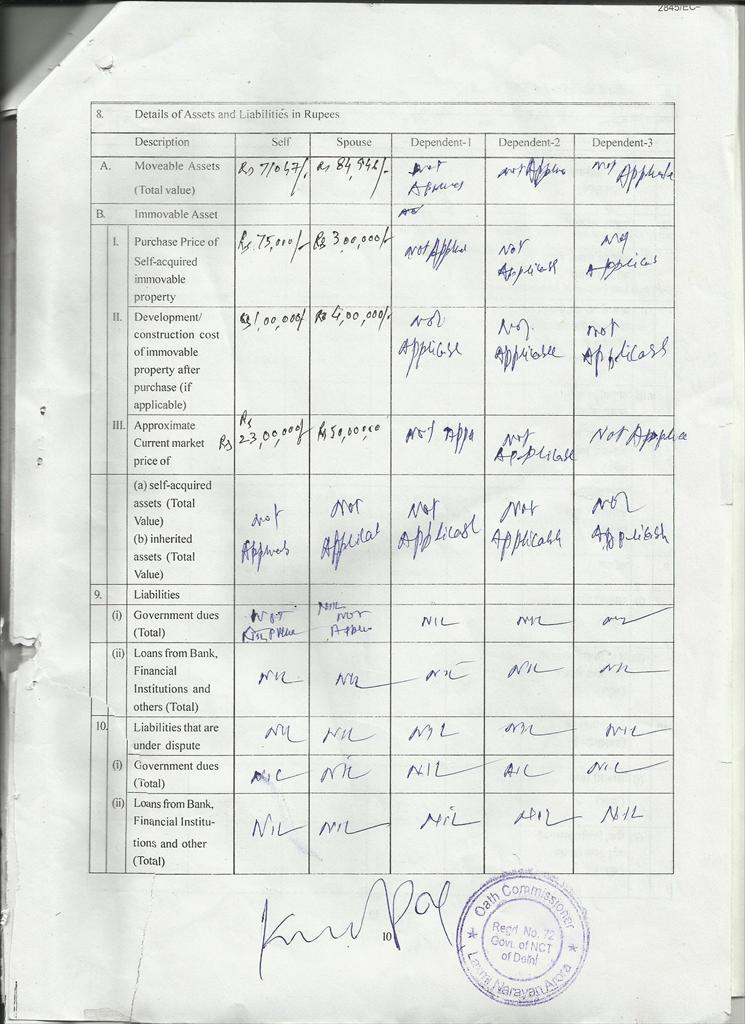 2845/EC-
8. Details of Assets and Liabilities in Rupees
Description Self Spouse Dependent-1 Dependent-2 Dependent-3
A. Moveable Assets
(Total value)
Rs 84,942/-
not
not
B. Immovable Asset
I. Purchase Price of Rs. 75,000/- Rs 300,000/-
Self-acquired
immovable
property
not
Not
Not
II. Development/ Rs 1,00,000/- Rs 4,00,000/-
construction cost
of immovable
property after
purchase (if
applicable)
Not Not. not
Applicable Applicable
III. Approximate
Current market
price of
Rs 23,00,000/-
Not Not Not
Applicable
(a) self-acquired
assets (Total
Value)
(b) inherited
assets (Total
Value)
not Not Not Not Not
9. Liabilities
(i) Government dues Not Not NIL NIL
(Total)
(ii) Loans from Bank,
Financial
Institutions and
others (Total)
NIL NIL NIL NIL NIL
10. Liabilities that are NIL NIL NIL NIL NIL
under dispute
(i) Government dues NIL NIL NIL NIL NIL
(Total)
(ii) Loans from Bank,
Financial Institu-
tions and other
(Total)
NIL NIL NIL NIL NIL
10
Oath Commissioner
Regd. No. 72
Govt. of NCT
of Delhi
Laxmi Narayan Arora